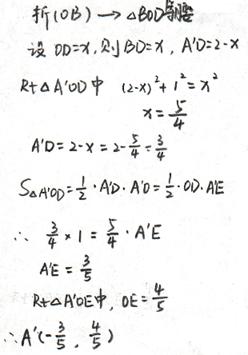 折(OB) → △BOD等腰
设 OD=x, 则BD=x, A'D=2-x
Rt△A'OD中 (2-x)²+1²=x²
x=5/4
A'D=2-x=2-5/4=3/4
S△A'OD=1/2·A'D·A'O=1/2·OD·A'E
∴ 3/4×1=5/4·A'E
A'E=3/5
Rt△A'OE中, OE=4/5
∴A'(-3/5, 4/5)